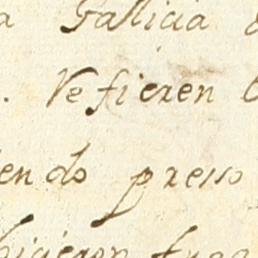 a Gallicia
. Vefieren
endo presso
hicieron